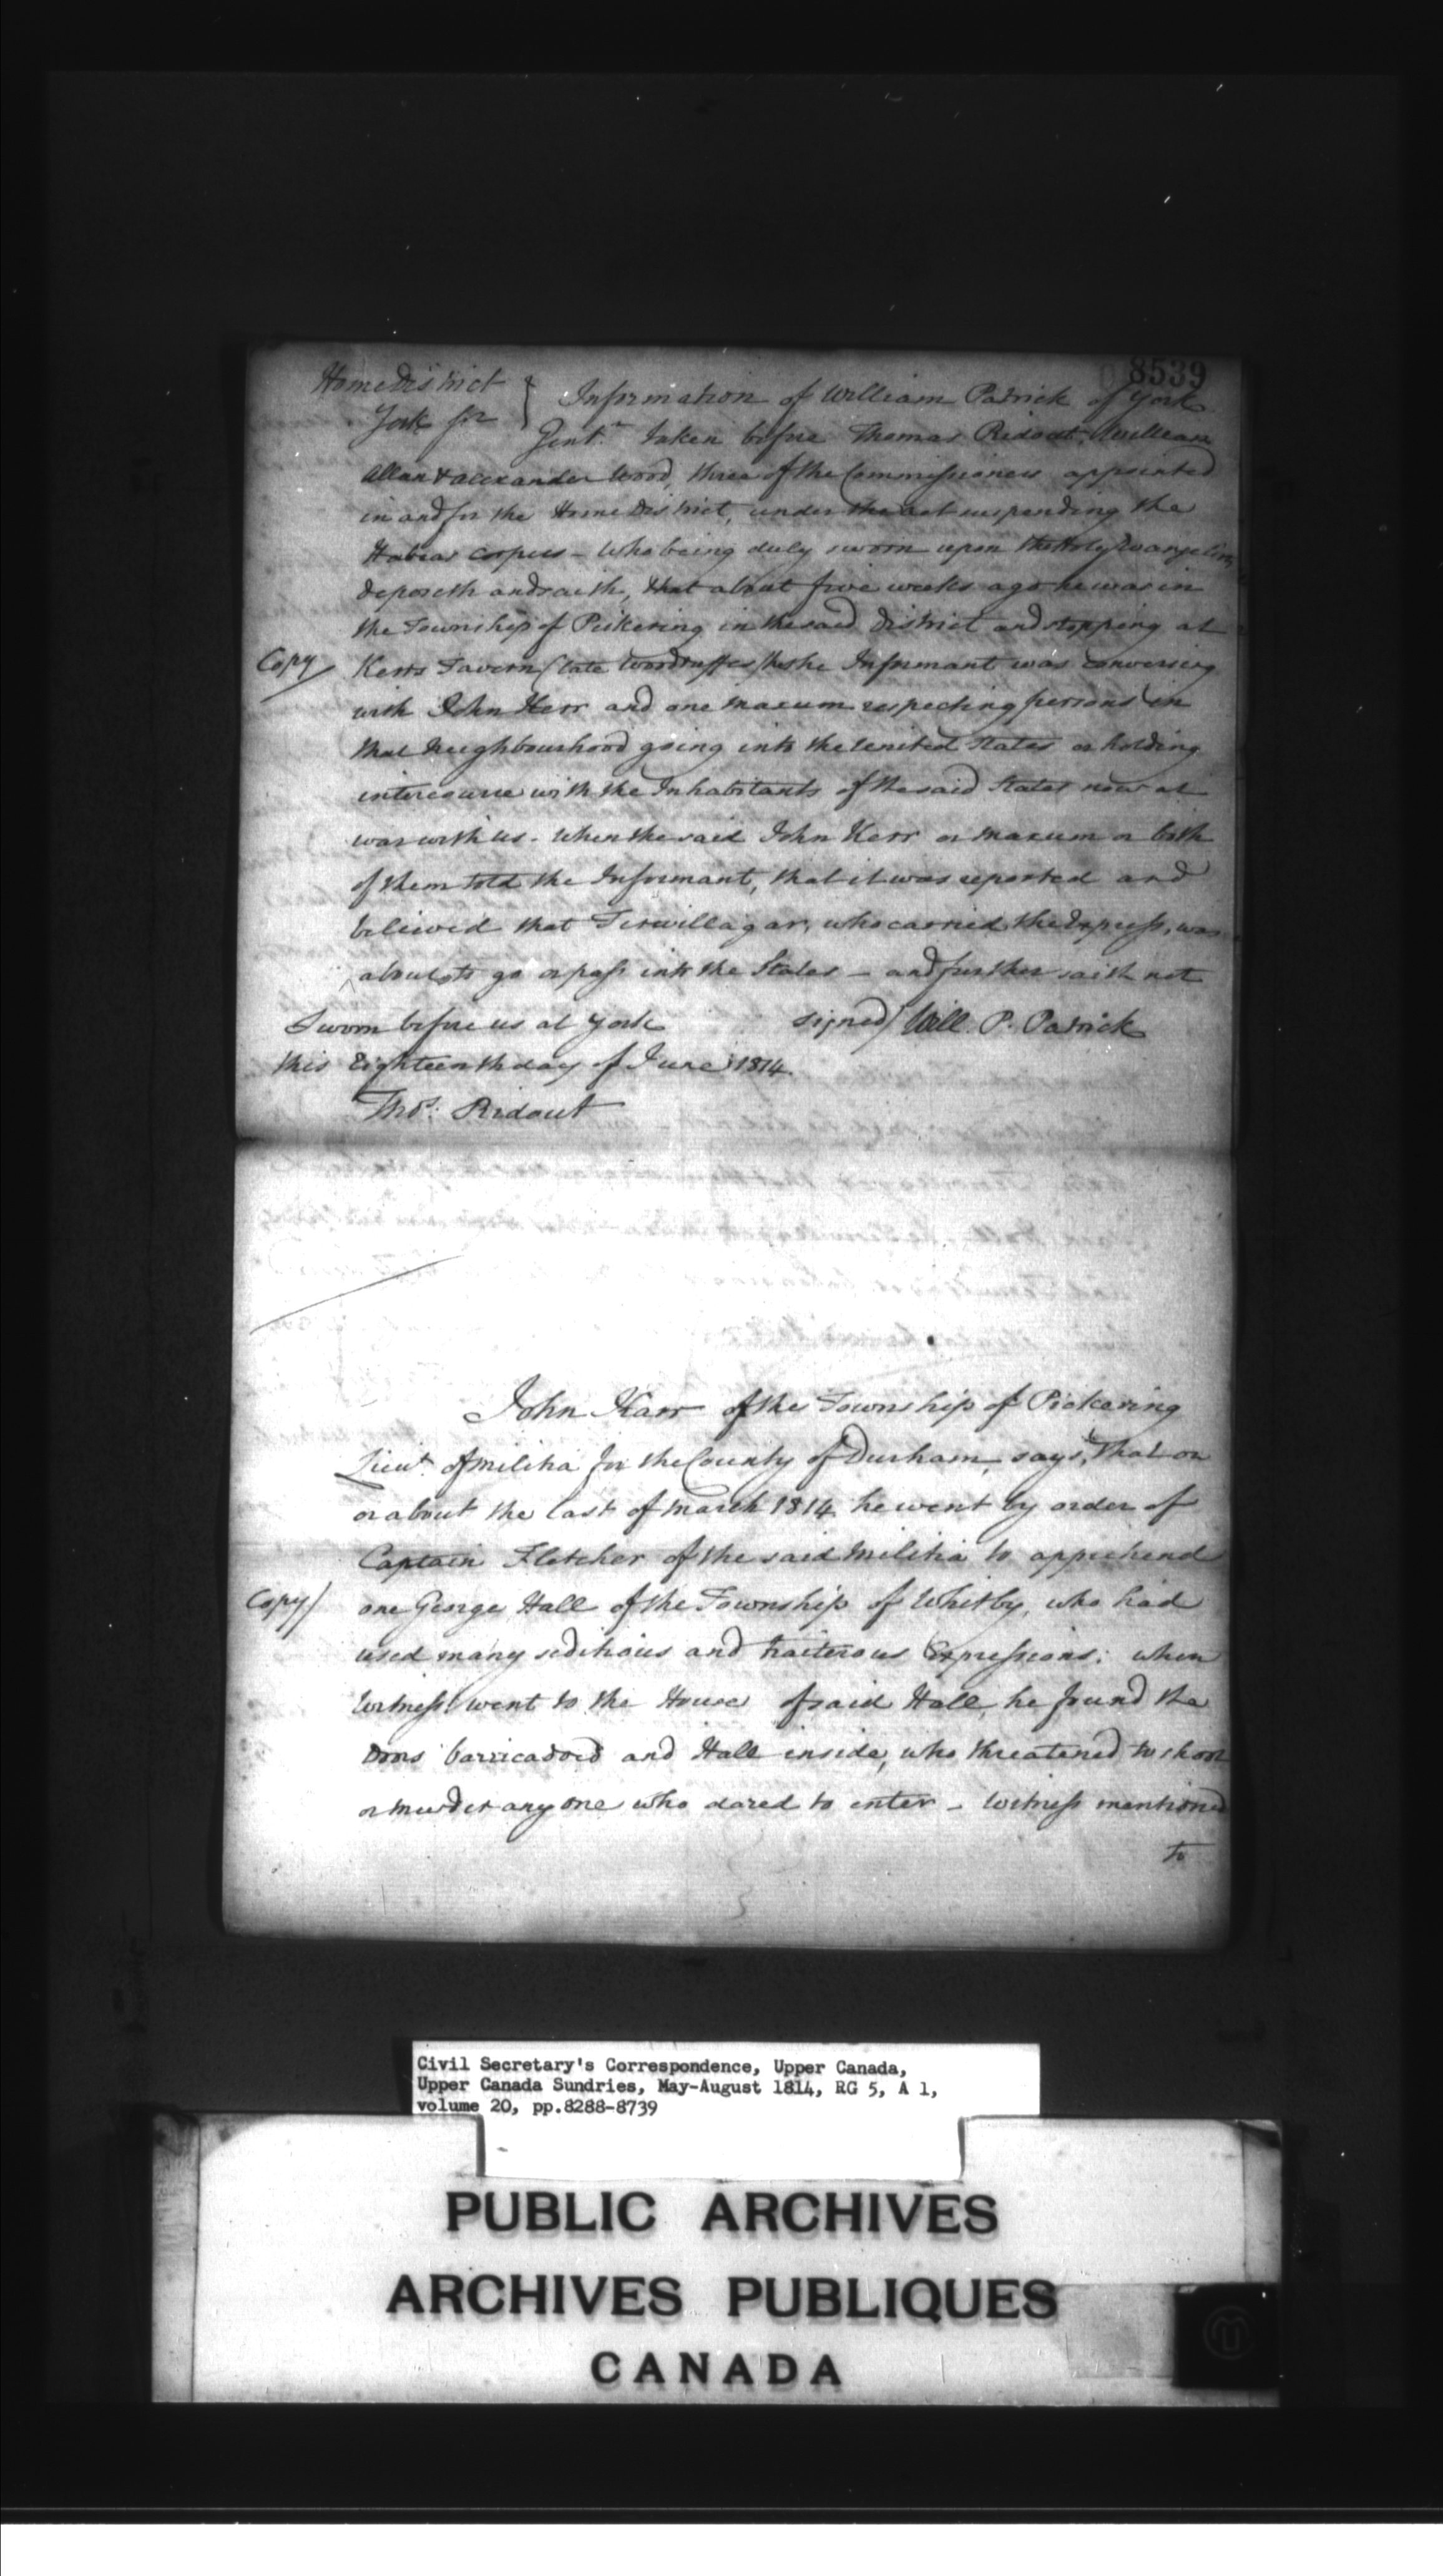 8539
Home District } Information of William Patrick of York
York ss
Gent.n taken before Thomas Ridout William
Allan & alexander Wood, three of the Commissioners appointed
in and for the Home District, under the act suspending the
Habeas corpus - Who being duly sworn upon the Holy Evangelists
deposeth and saith, that about five weeks ago he was in
the Township of Pickering in the said district and stopping at
Copy/ Kerrs Tavern (late Woodruffes) he the Informant was conversing
with John Kerr and one Marum respecting persons in
that Neighbourhood going into the United States or holding
intercourse with the Inhabitants of the said States now at
war with us. When the said John Kerr or Marum or both
of them told the Informant, that it was reported and
believed that Terwillagar, who carried the Express, was
about to go or pass into the States - and further saith not
Sworn before us at York signed/ Will. P. Patrick
this Eighteenth day of June 1814.
Thos. Ridout
John Karr of the Township of Pickering
Lieut. of Militia for the County of Durham, says, That on
or about the last of March 1814 he went by order of
Captain Fletcher of the said Militia to apprehend
Copy/ one George Hall of the Township of Whitby, who had
used many seditious and traiterous Expressions: when
Witness went to the House of said Hall, he found the
Doors barricadoed and Hall inside, who threatened to shoot
or murder any one who dared to enter - Witness mentioned
to
Civil Secretary's Correspondence, Upper Canada,
Upper Canada Sundries, May-August 1814, RG 5, A 1,
volume 20, pp.8288-8739
PUBLIC ARCHIVES
ARCHIVES PUBLIQUES
CANADA